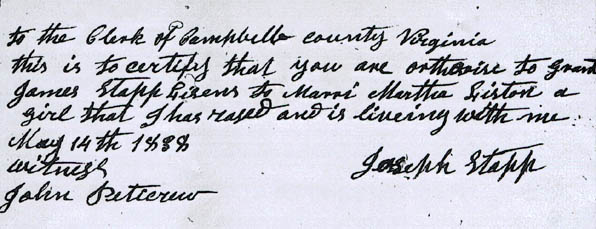 to the Clerk of Campbell county Virginia
this is to certify that you are orthorise to Grant
James Stapp Lisens to Marri Martha Liston a
girl that I has rased and is liveing with me.
May 14th 1838
witness Joseph Stapp
John Peticrew